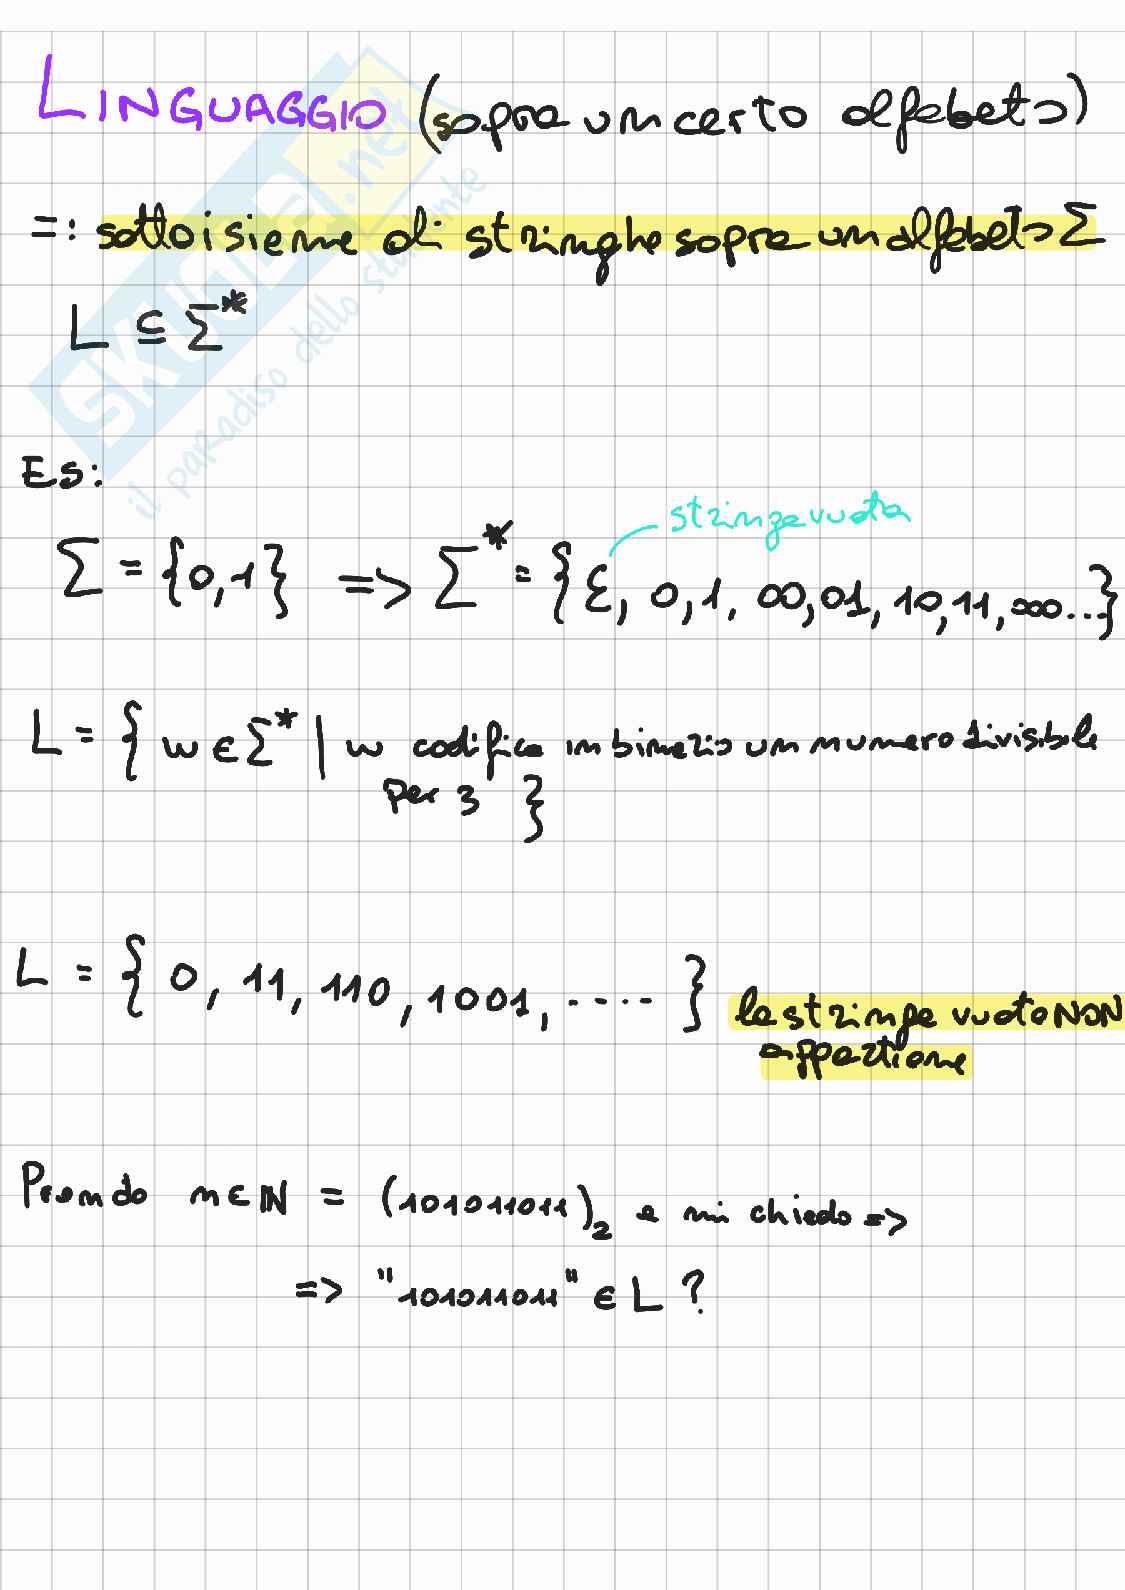 LINGUAGGIO (sopra un certo alfabeto)
=: sottoisieme di stringhe sopra un alfabeto Σ
L ⊆ Σ*
Es:
stringa vuota
Σ = {0,1} => Σ* = {ε, 0, 1, 00, 01, 10, 11, 000...}
L = { w ∈ Σ* | w codifica in binario un numero divisibile
per 3 }
L = { 0, 11, 110, 1001, ..... } la stringa vuota NON
appartiene
Prendo n ∈ ℕ = (101011011)₂ e mi chiedo =>
=> "101011011" ∈ L ?
SKUOLA.net
il paradiso dello studente